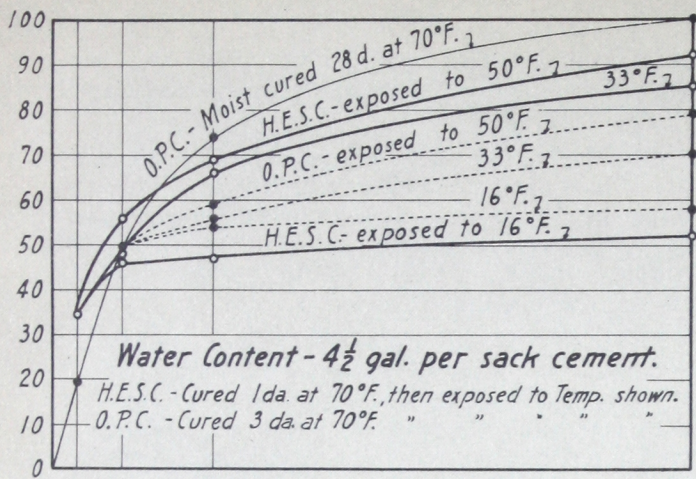 100
90
80
70
60
50
40
30
20
10
0
O.P.C.- Moist cured 28 d. at 70°F.
H.E.S.C.-exposed to 50°F.
33°F.
O.P.C.- exposed to 50°F.
33°F.
16°F.
H.E.S.C.- exposed to 16°F.
Water Content - 4½ gal. per sack cement.
H.E.S.C. - Cured 1 da. at 70°F., then exposed to Temp. shown.
O.P.C. - Cured 3 da. at 70°F. " " " " "